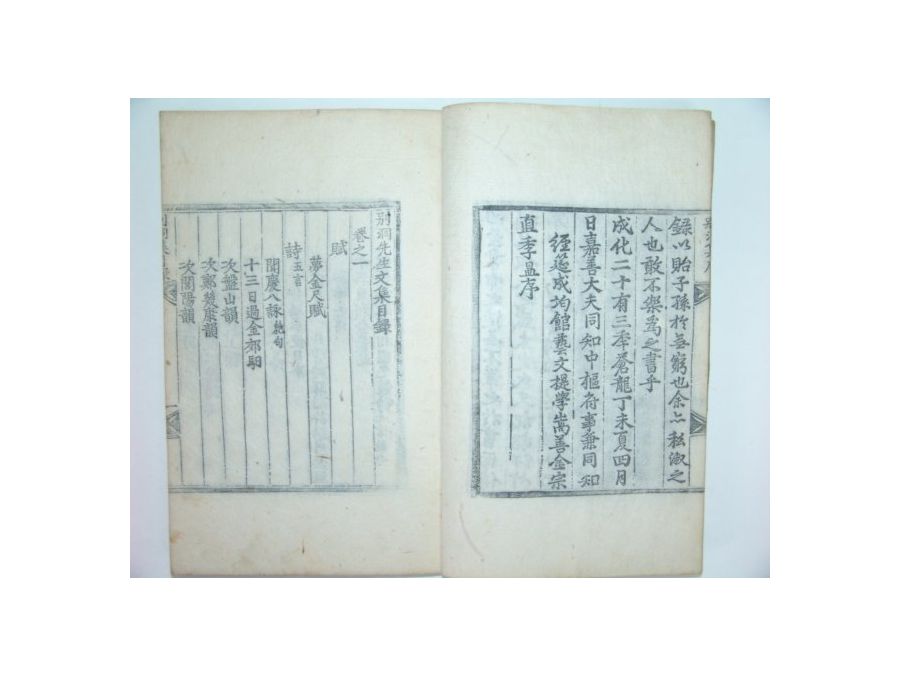 録以貽子孫於無窮也余亦私淑之
人也敢不樂爲之書乎
成化二十有三年蒼龍丁未夏四月
日嘉善大夫同知中樞府事兼同知
經筵成均館藝文提學嵩善金宗
直季昷序
別洞先生文集目録
卷之一
賦
夢金尺賦
詩 五言
聞慶八詠 絶句
十三日過金郊馹
次盤山韻
次鄭獘康韻
次閭陽韻